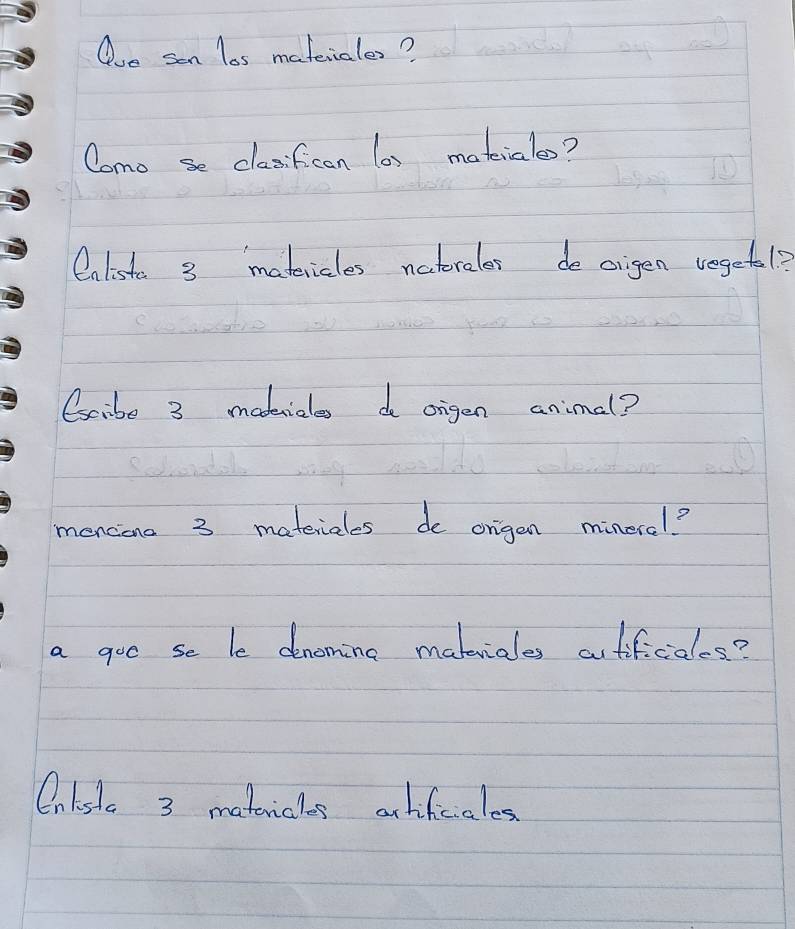 Que son los materiales?
Como se clasifican los materiales?
Enlista 3 materiales naturales de origen vegetal?
Escribe 3 materiales de origen animal?
menciona 3 materiales de origen mineral?
a que se le denomina materiales artificiales?
Enlista 3 materiales artificiales